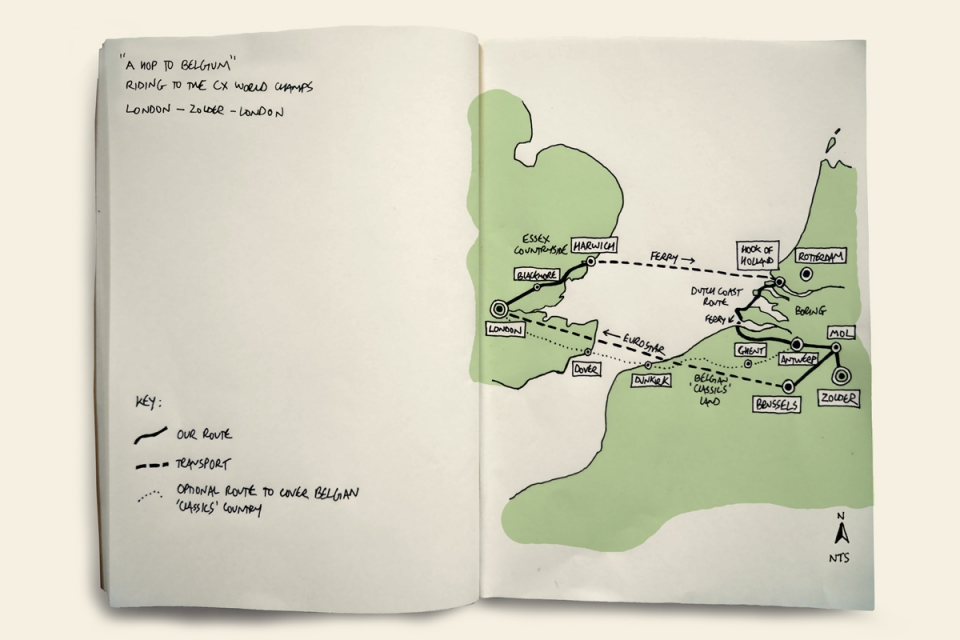 "A HOP TO BELGIUM"
RIDING TO THE CX WORLD CHAMPS
LONDON – ZOLDER – LONDON
KEY:
OUR ROUTE
TRANSPORT
OPTIONAL ROUTE TO COVER BELGIAN
'CLASSICS' COUNTRY
ESSEX
COUNTRYSIDE
HARWICH
BLACKMORE
LONDON
DOVER
FERRY →
HOOK OF
HOLLAND
ROTTERDAM
DUTCH COAST
ROUTE
FERRY
BORING
← EUROSTAR
DUNKIRK
GHENT
ANTWERP
MOL
BELGIAN
'CLASSICS'
LAND
BRUSSELS
ZOLDER
N
NTS